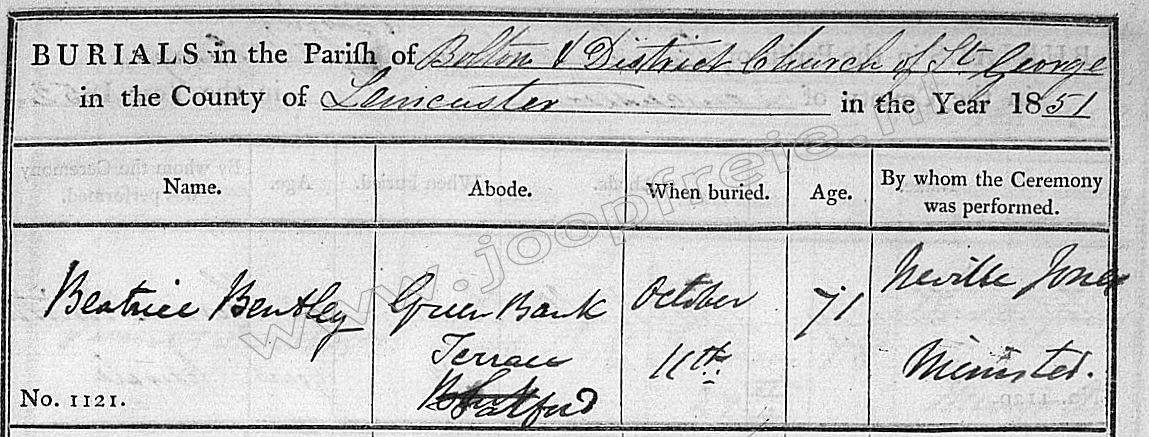 BURIALS in the Pariſh of Bolton & District Church of St George
in the County of Lancaster in the Year 1851
Name.
Abode.
When buried.
Age.
By whom the Ceremony
was performed.
Beatrice Bentley
Green Bank
Terrace
Salford
October
11th.
71
Neville Jones
Minister.
No. 1121.
www.joopfreie.nl